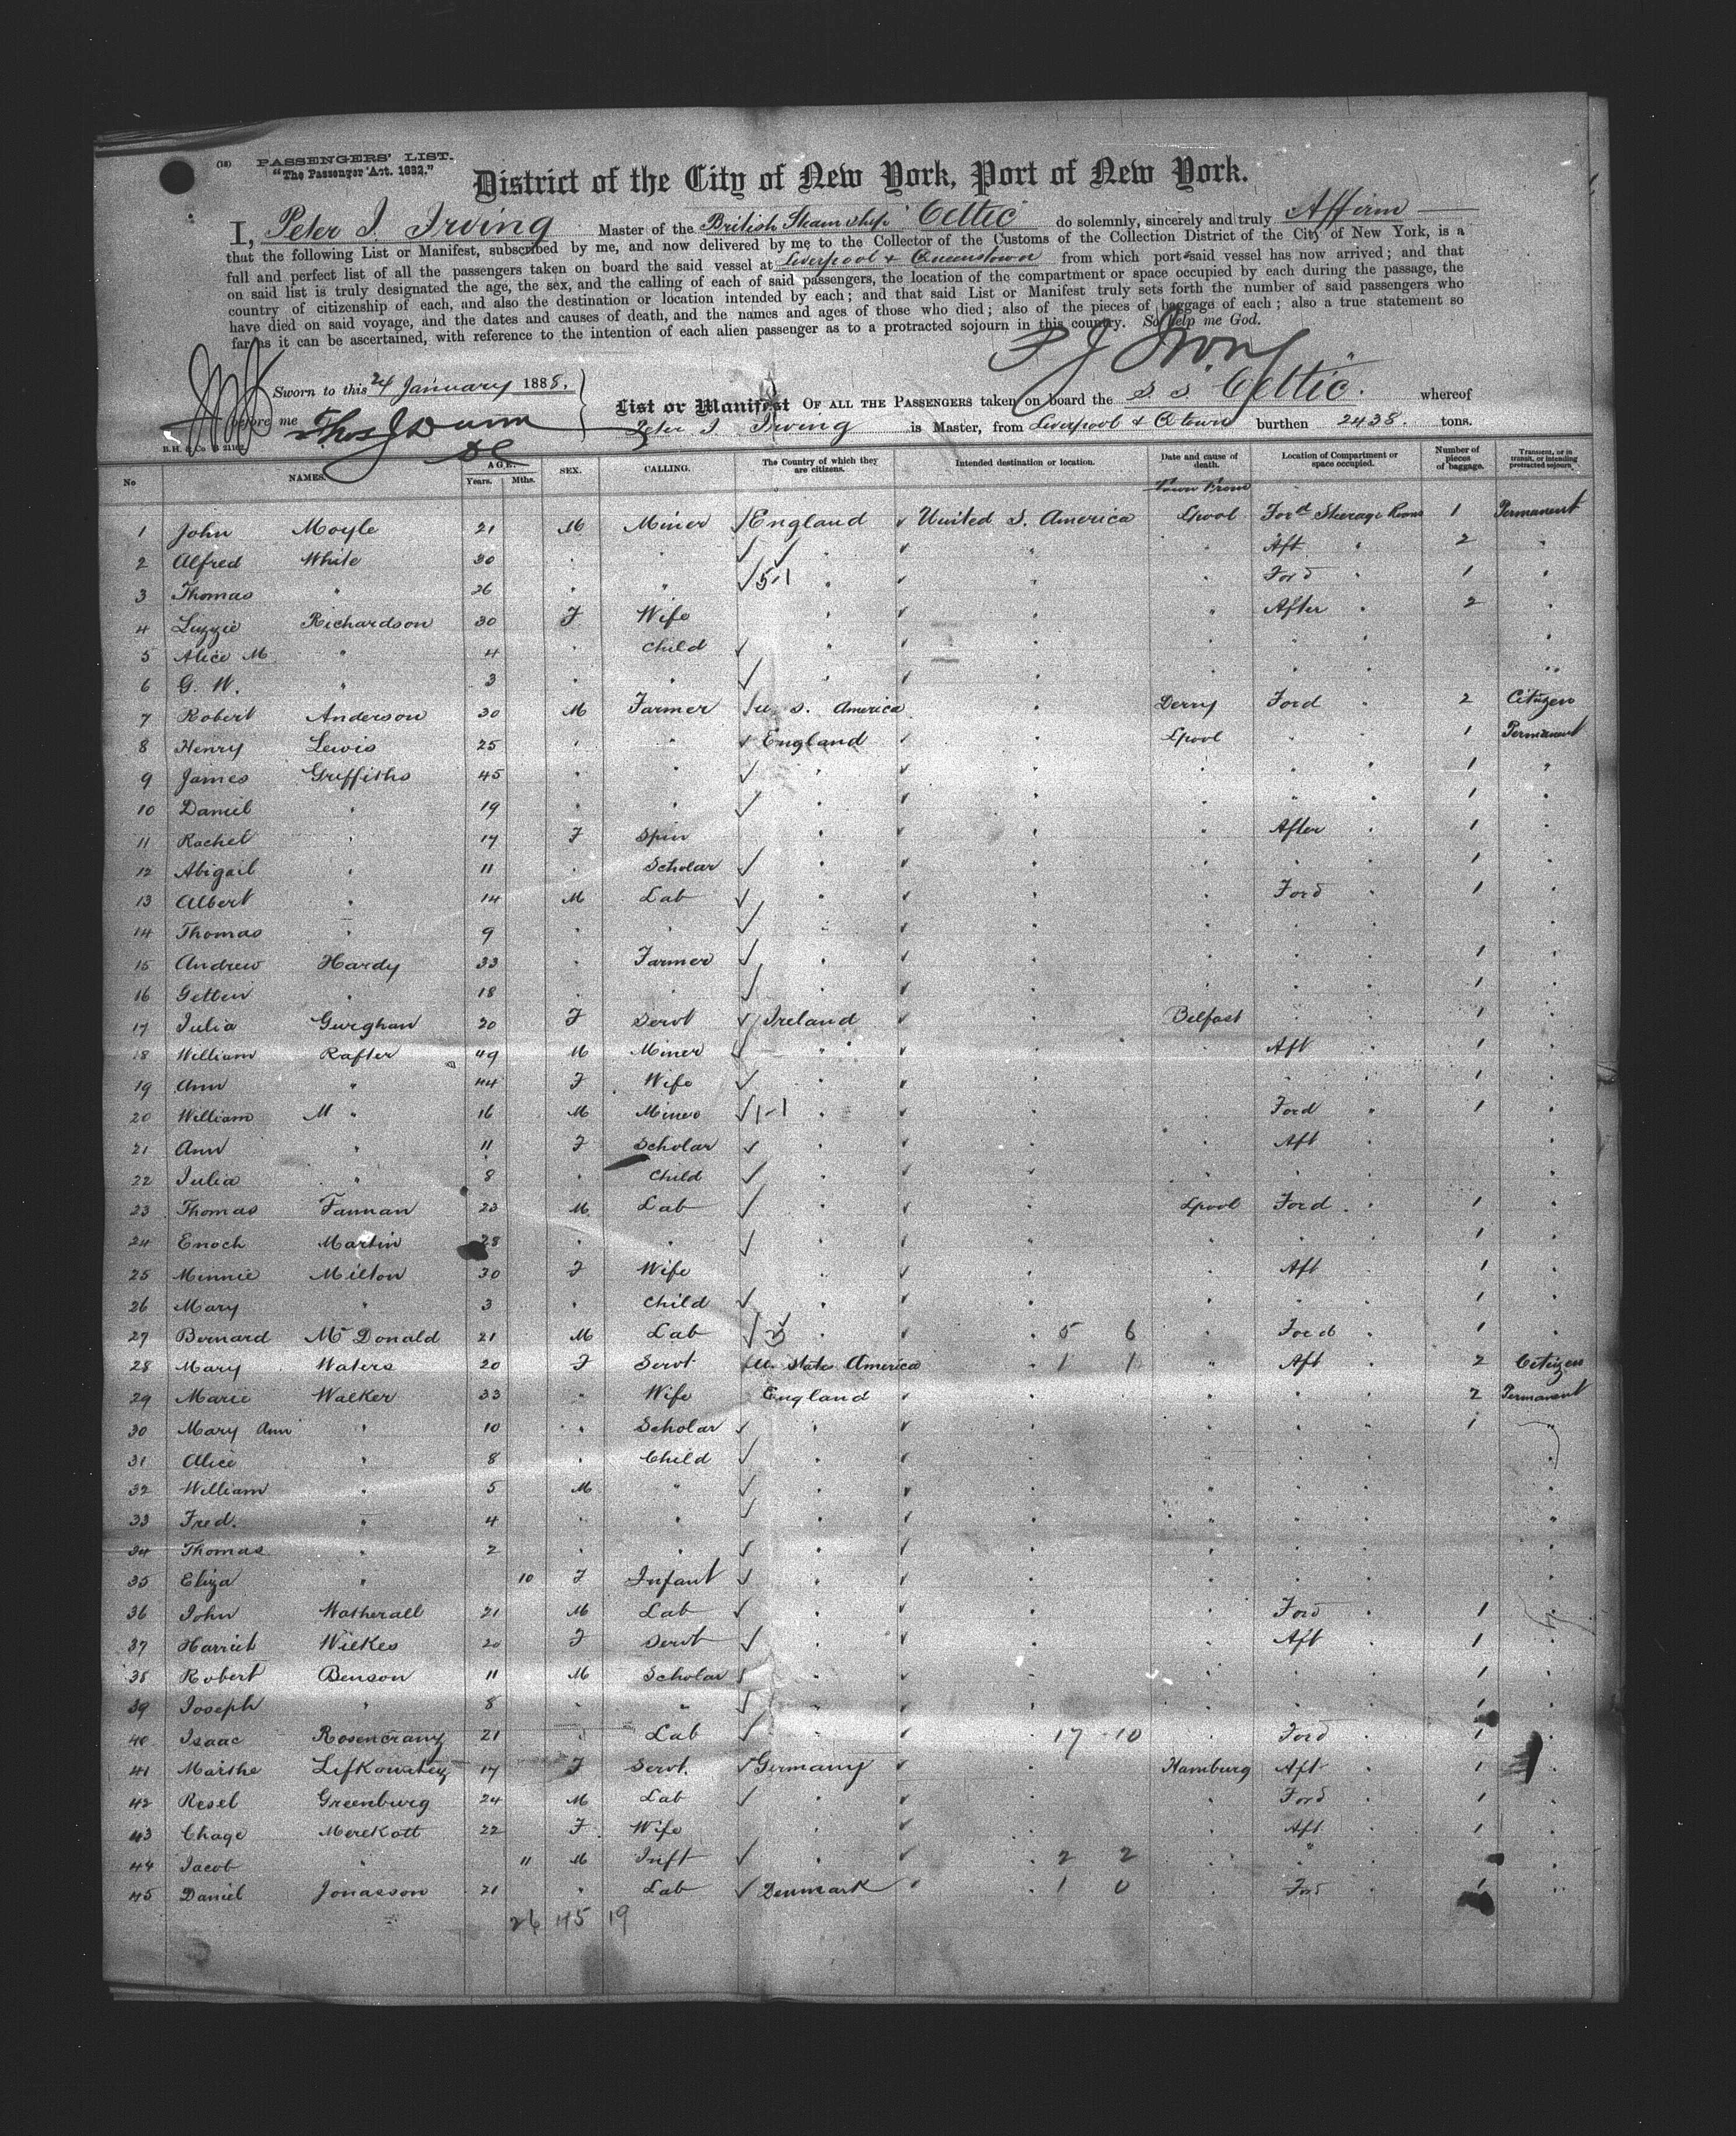 (18) PASSENGERS' LIST.
"The Passenger Act. 1882."
District of the City of New York, Port of New York.
I, Peter J. Irving Master of the British Steam Ship "Celtic" do solemnly, sincerely and truly Affirm
that the following List or Manifest, subscribed by me, and now delivered by me to the Collector of the Customs of the Collection District of the City of New York, is a
full and perfect list of all the passengers taken on board the said vessel at Liverpool & Queenstown from which port said vessel has now arrived; and that
on said list is truly designated the age, the sex, and the calling of each of said passengers, the location of the compartment or space occupied by each during the passage, the
country of citizenship of each, and also the destination or location intended by each; and that said List or Manifest truly sets forth the number of said passengers who
have died on said voyage, and the dates and causes of death, and the names and ages of those who died; also of the pieces of baggage of each; also a true statement so
far as it can be ascertained, with reference to the intention of each alien passenger as to a protracted sojourn in this country. So help me God.
P J Irving
Sworn to this 24 January 1888.
before me Thos J Dunn
DC
List or Manifest OF ALL THE PASSENGERS taken on board the S. S. Celtic. whereof
Peter J Irving is Master, from Liverpool & Qtown burthen 2438. tons.
No NAMES. AGE. Years. Mths. SEX. CALLING. The Country of which they are citizens. Intended destination or location. Date and cause of death. Location of Compartment or space occupied. Number of pieces of baggage. Transient, or in transit, or intending protracted sojourn.
Town From
1 John Moyle 21 M Miner England United S. America Lpool For'd Steerage Room 1 Permanent
2 Alfred White 30 " " " " " Aft " 2 "
3 Thomas " 26 " " 5-1 " " " Ford " 1 "
4 Lizzie Richardson 30 F Wife " " " After " 2 "
5 Alice M " 4 " Child " " " " " "
6 G. W. " 3 " " " " " " " "
7 Robert Anderson 30 M Farmer U. S. America " Derry Ford " 2 Citizen
8 Henry Lewis 25 " " England " Lpool " " 1 Permanent
9 James Griffiths 45 " " " " " " " 1 "
10 Daniel " 19 " " " " " " " 1 "
11 Rachel " 17 F Spin " " " After " 1 "
12 Abigail " 11 " Scholar " " " " " 1 "
13 Albert " 14 M Lab " " " Ford " 1 "
14 Thomas " 9 " " " " " " " "
15 Andrew Hardy 33 " Farmer " " " " " 1 "
16 " 18 " " " " " " " 1 "
17 Julia 20 F Servt Ireland " Belfast " " 1 "
18 William Rafter 49 M Miner " " " Aft " 1 "
19 Ann " 44 F Wife " " " " " 1 "
20 William M " 16 M Miner 1-1 " " " Ford " 1 "
21 Ann " 11 F Scholar " " " Aft " "
22 Julia " 8 " Child " " " " " "
23 Thomas Fannan 23 M Lab " " Lpool Ford " 1 "
24 Enoch Martin 28 " " " " " " " 1 "
25 Minnie Milton 30 F Wife " " " Aft " 1 "
26 Mary " 3 " Child " " " " " 1 "
27 Bernard McDonald 21 M Lab " " 5 6 " Ford " 1 "
28 Mary Waters 20 F Servt U. States America " 1 1 " Aft " 2 Citizen
29 Marie Walker 33 " Wife England " " " " 2 Permanent
30 Mary Ann " 10 " Scholar " " " " " 1 "
31 Alice " 8 " Child " " " " " "
32 William " 5 M " " " " " " "
33 Fred. " 4 " " " " " " " "
34 Thomas " 2 " " " " " " " "
35 Eliza " 10 F Infant " " " " " "
36 John Watherall 21 M Lab " " " Ford " 1 "
37 Harriet Wilkes 20 F Servt " " " Aft " 1 "
38 Robert Benson 11 M Scholar " " " " " 1 "
39 Joseph " 8 " " " " " " " 1 "
40 Isaac Rosencranz 21 " Lab " " 17 10 " Ford " 1 "
41 17 F Servt. Germany " Hamburg Aft " 1 "
42 Resel Greenburg 24 M Lab " " " Ford " 1 "
43 Chage Merekott 22 F Wife " " " Aft " 1 "
44 Jacob " 11 M Inft " " 2 2 " " " "
45 Daniel Jonasson 21 " Lab Denmark " 1 0 " Ford " 1 "
26 45 19